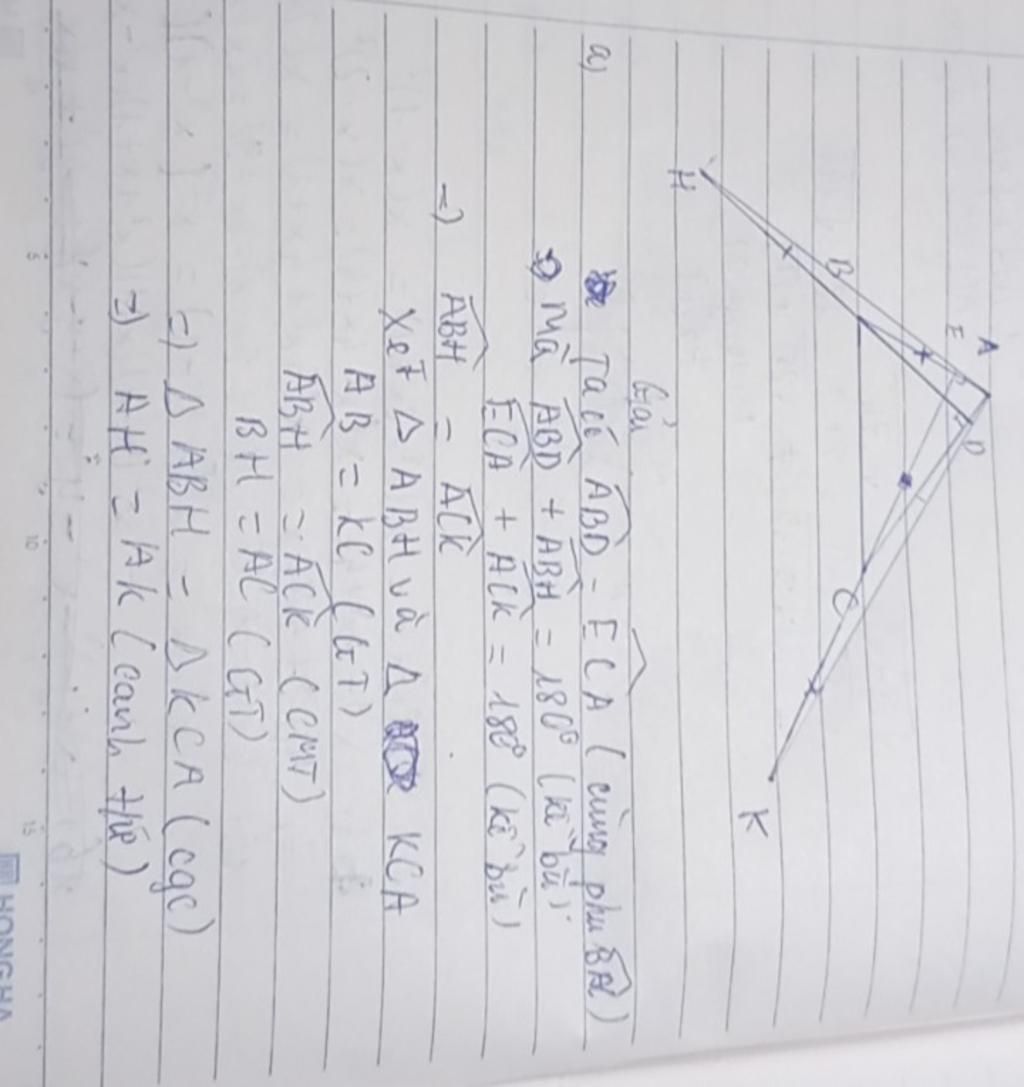 A
E
D
B
C
H
K
Giải
a) Ta có ABD = ECA (cùng phụ BAC)
Mà ABD + ABH = 180° (kề bù)
ECA + ACK = 180° (kề bù)
=) ABH = ACK
Xét Δ ABH và Δ KCA
AB = KC (GT)
ABH = ACK (CMT)
BH = AC (GT)
=) Δ ABH = Δ KCA (cgc)
=) AH = AK (cạnh t/ứ)
5
10
15
HONG HA